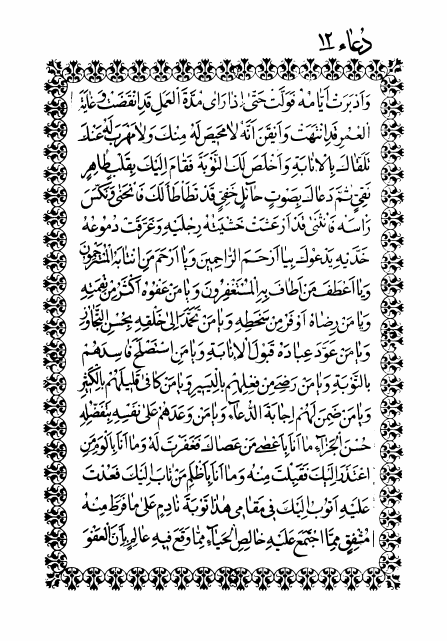 دُعاء ١٢
وَاَدْبَرَتْ اَيّامُهُ فَوَلَّتْ حَتّىٰ اِذا رَاى مُدَّةَ الْعَمَلِ قَدِ انْقَضَتْ وَغايَةَ
الْعُمْرِ قَدِ انْتَهَتْ وَاَيْقَنَ اَنَّهُ لا مَحيصَ لَهُ مِنْكَ وَلا مَهْرَبَ لَهُ عَنْكَ
تَلَقّاكَ بِالاِنابَةِ وَاَخْلَصَ لَكَ التَّوْبَةَ فَقامَ اِلَيْكَ بِقَلْبٍ طاهِرٍ
نَقِيٍّ ثُمَّ دَعاكَ بِصَوْتٍ حائِلٍ خَفِيٍّ قَدْ تَطَاْطَاَ لَكَ فَانْحَنىٰ وَنَكَّسَ
رَاْسَهُ فَانْثَنىٰ قَدْ اَرْعَشَتْ خَشْيَتُهُ رِجْلَيْهِ وَغَرَّقَتْ دُمُوعُهُ
خَدَّيْهِ يَدْعُوكَ بِيا اَرْحَمَ الرّاحِمينَ وَيا اَرْحَمَ مَنِ انْتابَهُ الْمُسْتَرْحِمُونَ
وَيا اَعْطَفَ مَنْ اَطافَ بِهِ الْمُسْتَغْفِرُونَ وَيا مَنْ عَفْوُهُ اَكْثَرُ مِنْ نِقْمَتِهِ
وَيا مَنْ رِضاهُ اَوْفَرُ مِنْ سَخَطِهِ وَيا مَنْ تَحَمَّدَ اِلىٰ خَلْقِهِ بِحُسْنِ التَّجاوُزِ
وَيا مَنْ عَوَّدَ عِبادَهُ قَبُولَ الاِنابَةِ وَيا مَنِ اسْتَصْلَحَ فاسِدَهُمْ
بِالتَّوْبَةِ وَيا مَنْ رَضِيَ مِنْ فِعْلِهِمْ بِالْيَسيرِ وَيا مَنْ كافىٰ قَليلَهُمْ بِالْكَثيرِ
وَيا مَنْ ضَمِنَ لَهُمْ اِجابَةَ الدُّعاءِ وَيا مَنْ وَعَدَهُمْ عَلىٰ نَفْسِهِ بِتَفَضُّلِهِ
حُسْنَ الْجَزاءِ ما اَنَا بِاَعْصىٰ مَنْ عَصاكَ فَغَفَرْتَ لَهُ وَما اَنَا بِاَلْوَمِ مَنِ
اعْتَذَرَ اِلَيْكَ فَقَبِلْتَ مِنْهُ وَما اَنَا بِاَظْلَمِ مَنْ تابَ اِلَيْكَ فَعُدْتَ
عَلَيْهِ اَتُوبُ اِلَيْكَ فى مَقامى هٰذا تَوْبَةَ نادِمٍ عَلىٰ ما فَرَطَ مِنْهُ
مُشْفِقٍ مِمَّا اجْتَمَعَ عَلَيْهِ خالِصِ الْحَياءِ مِمّا وَقَعَ فيهِ عالِمٍ بِاَنَّ الْعَفْوَ